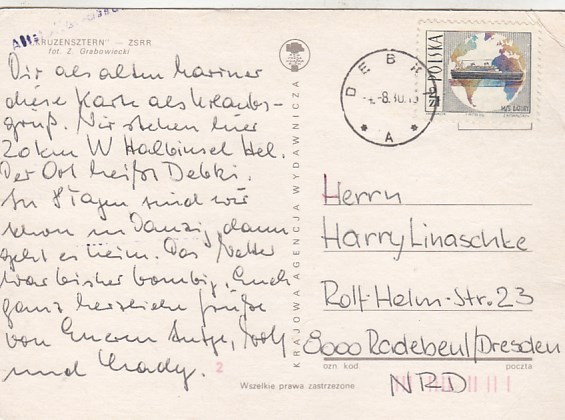 "KRUZENSZTERN" – ZSRR
fot. Z. Grabowiecki
Dir als altem Mariner
diese Karte als Urlaubs-
gruß. Wir stehen hier
20 km W Halbinsel Hel.
Der Ort heißt Debki.
In 8 Tagen sind wir
schon in Danzig, dann
geht es heim. Das Wetter
war bisher bombig. Euch
ganz herzliche Grüße
von Eueren Antje, Rolf
und
2
KRAJOWA AGENCJA WYDAWNICZA
POLSKA
2 ZŁ
M/S
DĘB
-8.10.
A
Herrn
Harry Linaschke
Rolf-Helm-Str. 23
8000 Radebeul/Dresden
ozn kod poczta
NRD
Wszelkie prawa zastrzeżone